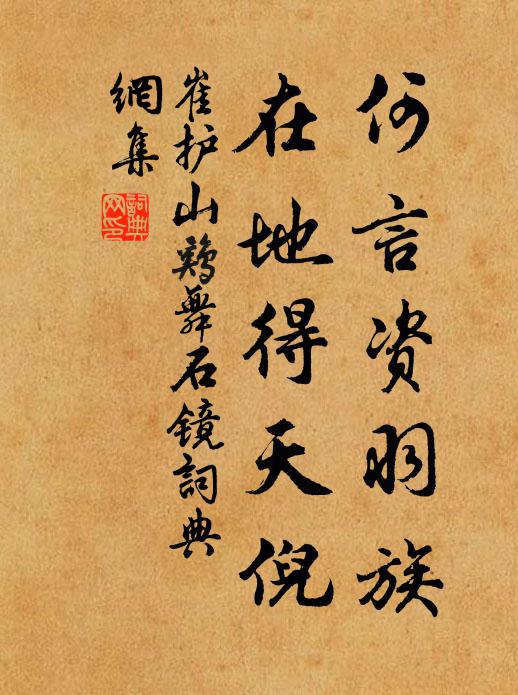 何言资羽族
在地得天倪
崔护山鸡舞石镜詞典
網集
詞典
网印